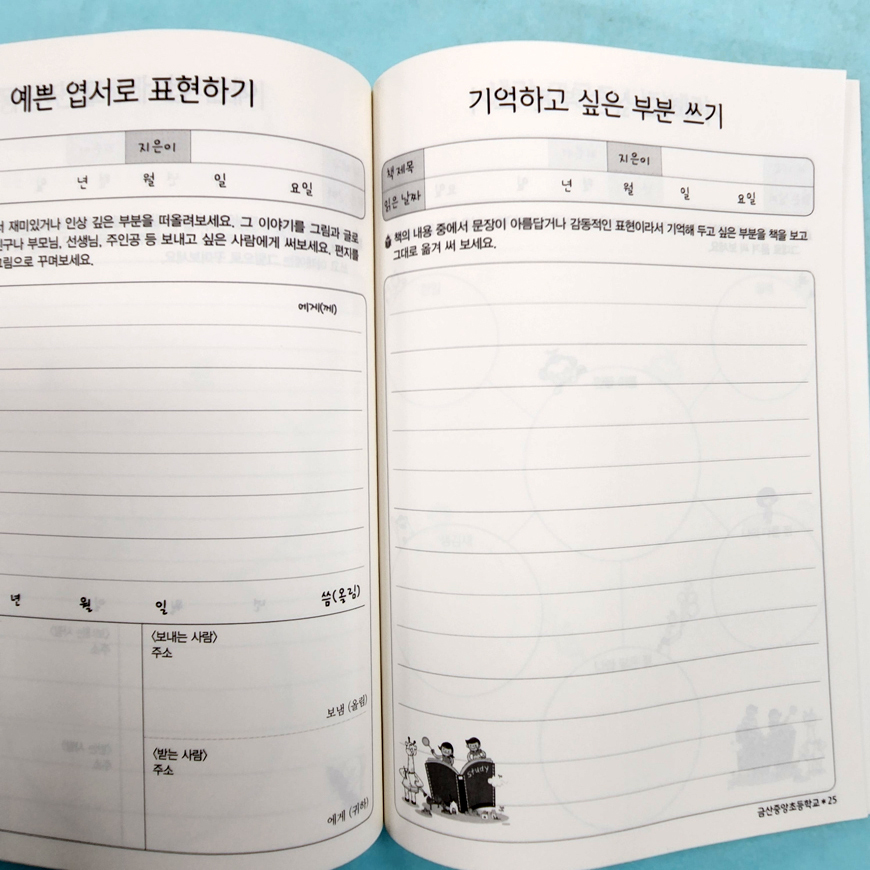 예쁜 엽서로 표현하기
지은이
년 월 일 요일
재미있거나 인상 깊은 부분을 떠올려보세요. 그 이야기를 그림과 글로
친구나 부모님, 선생님, 주인공 등 보내고 싶은 사람에게 써보세요. 편지를
그림으로 꾸며보세요.
에게(께)
년 월 일 씀(올림)
<보내는 사람>
주소
보냄 (올림)
<받는 사람>
주소
에게 (귀하)
기억하고 싶은 부분 쓰기
책 제목 지은이
읽은 날짜 년 월 일 요일
책의 내용 중에서 문장이 아름답거나 감동적인 표현이라서 기억해 두고 싶은 부분을 책을 보고
그대로 옮겨 써 보세요.
Study
금산중앙초등학교 * 25